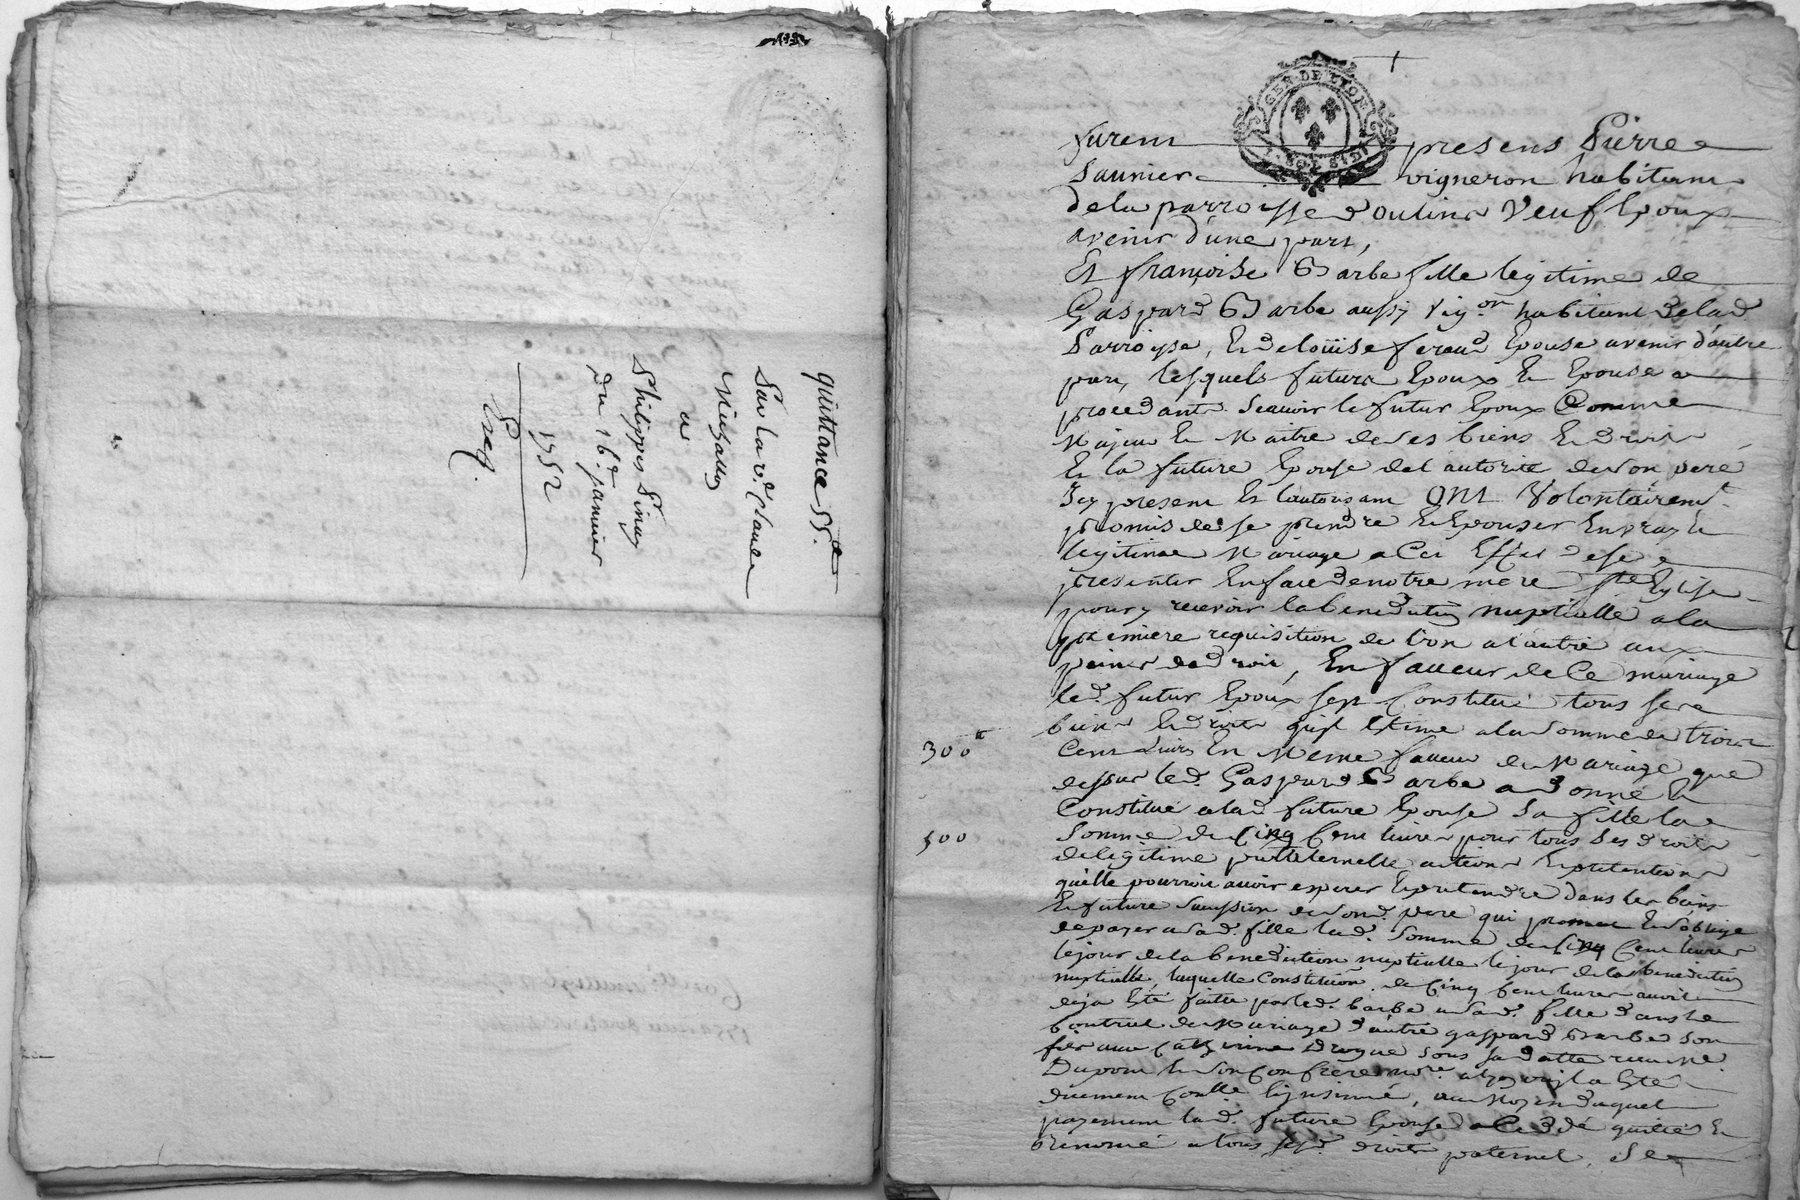 quittance ss.e
Par la v.e Claude
Michallon
a
Philippes Pinay
du 16.e janvier
1752
Greq.
GEN DE LYON
furent presens Pierre
Saunier vigneron habitant
de la parroisse d'oulins Veuf Epoux
avenir d'une part,
Et françoise Barbe fille legitime de
Gaspard Barbe aussy vig.on habitant de lad
Parroisse, Et de loüise feraud Epouse avenir d'autre
part, lesquels futurs Epoux Et Epouse
procedants scauoir le futur Epoux Comme
Majeur Et Maitre de ses biens Et droits
Et la future Epouse de l'autorité de son pere
Icy present Et l'autorisant ONt Volontairem.t
promis de se prendre Et Epouser En vray Et
legitime Mariage a Cet Effet de se
presenter En face de notre mere s.te Eglise
pour y recevoir la benediction nuptialle a la
premiere requisition de l'un a l'autre aux
peines de droit, En faueur de Ce mariage
led. futur Epoux sest Constitué tous ses
biens Et droits qu'il Estime a la somme de trois
300lt
Cent Livres En Meme faueur de Mariage que
dessus led. Gaspard Barbe a donné Et
Constitué a lad future Epouse sa fille la
500
somme de Cinq Cent livres pour tous ses droits
de legitime paternelle actions Et pretentions
quelle pourroit auoir esperer Et pretendre dans les biens
Et future succession de sond. pere qui promet Et s'oblige
de payer a sad. fille lad. somme de Cinq Cent livres
le jour de la benediction nuptialle le jour de la benediction
nuptialle, laquelle Constitution de Cinq Cent livres auoit
deja Eté faitte par led. barbe a sad. fille dans le
Contrat de Mariage d'autre gaspard Barbe son
fils auec Catherine Drogue sous sa datte receu M.e
Dupont Et son Confrere no.re a Lyon qui a Eté
duement Contlé. Et insinué, au Moyen duquel
payement lad. future Epouse a Cedé quitté Et
Renoncé a tous sesd. droits paternel, Se